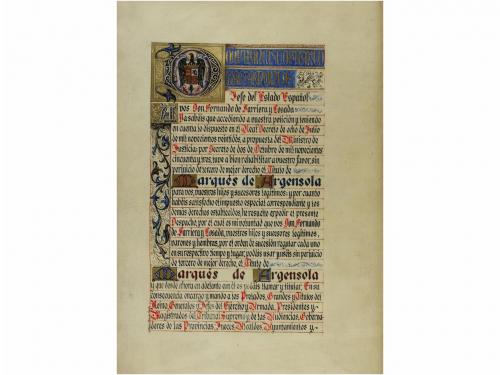 Jefe del Estado Español
A vos Don Fernando de Sarriera y Losada
Ya sabéis que accediendo a vuestra petición y teniendo
en cuenta lo dispuesto en el Real Decreto de ocho de Julio
de mil novecientos veintidós, a propuesta del Ministro
de Justicia; por Decreto de dos de Octubre de mil novecientos
cincuenta y tres, tuve a bien rehabilitar a vuestro favor, sin
perjuicio de tercero de mejor derecho el Título de
Marqués de Argensola
para vos, vuestros hijos y sucesores legítimos; y por cuanto
habéis satisfecho el impuesto especial correspondiente y los
demás derechos establecidos, he resuelto expedir el presente
Despacho, por el cual es mi voluntad que vos Don Fernando
de Sarriera y Losada, vuestros hijos y sucesores legítimos,
varones y hembras, por el orden de sucesión regular cada uno
en su respectivo tiempo y lugar, podáis usar y uséis sin perjuicio
de tercero de mejor derecho, el Título de
Marqués de Argensola
y que desde ahora en adelante con él os podáis llamar y titular. En su
consecuencia encargo y mando a los Prelados, Grandes y Títulos del
Reino, Generales y Jefes del Ejército y Armada, Presidentes y
Magistrados del Tribunal Supremo y de las Audiencias, Goberna-
dores de las Provincias, Jueces, Alcaldes, Ayuntamientos y